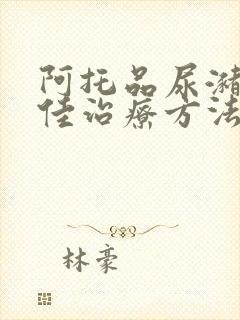 阿托品尿潴
佳治療方法
林豪